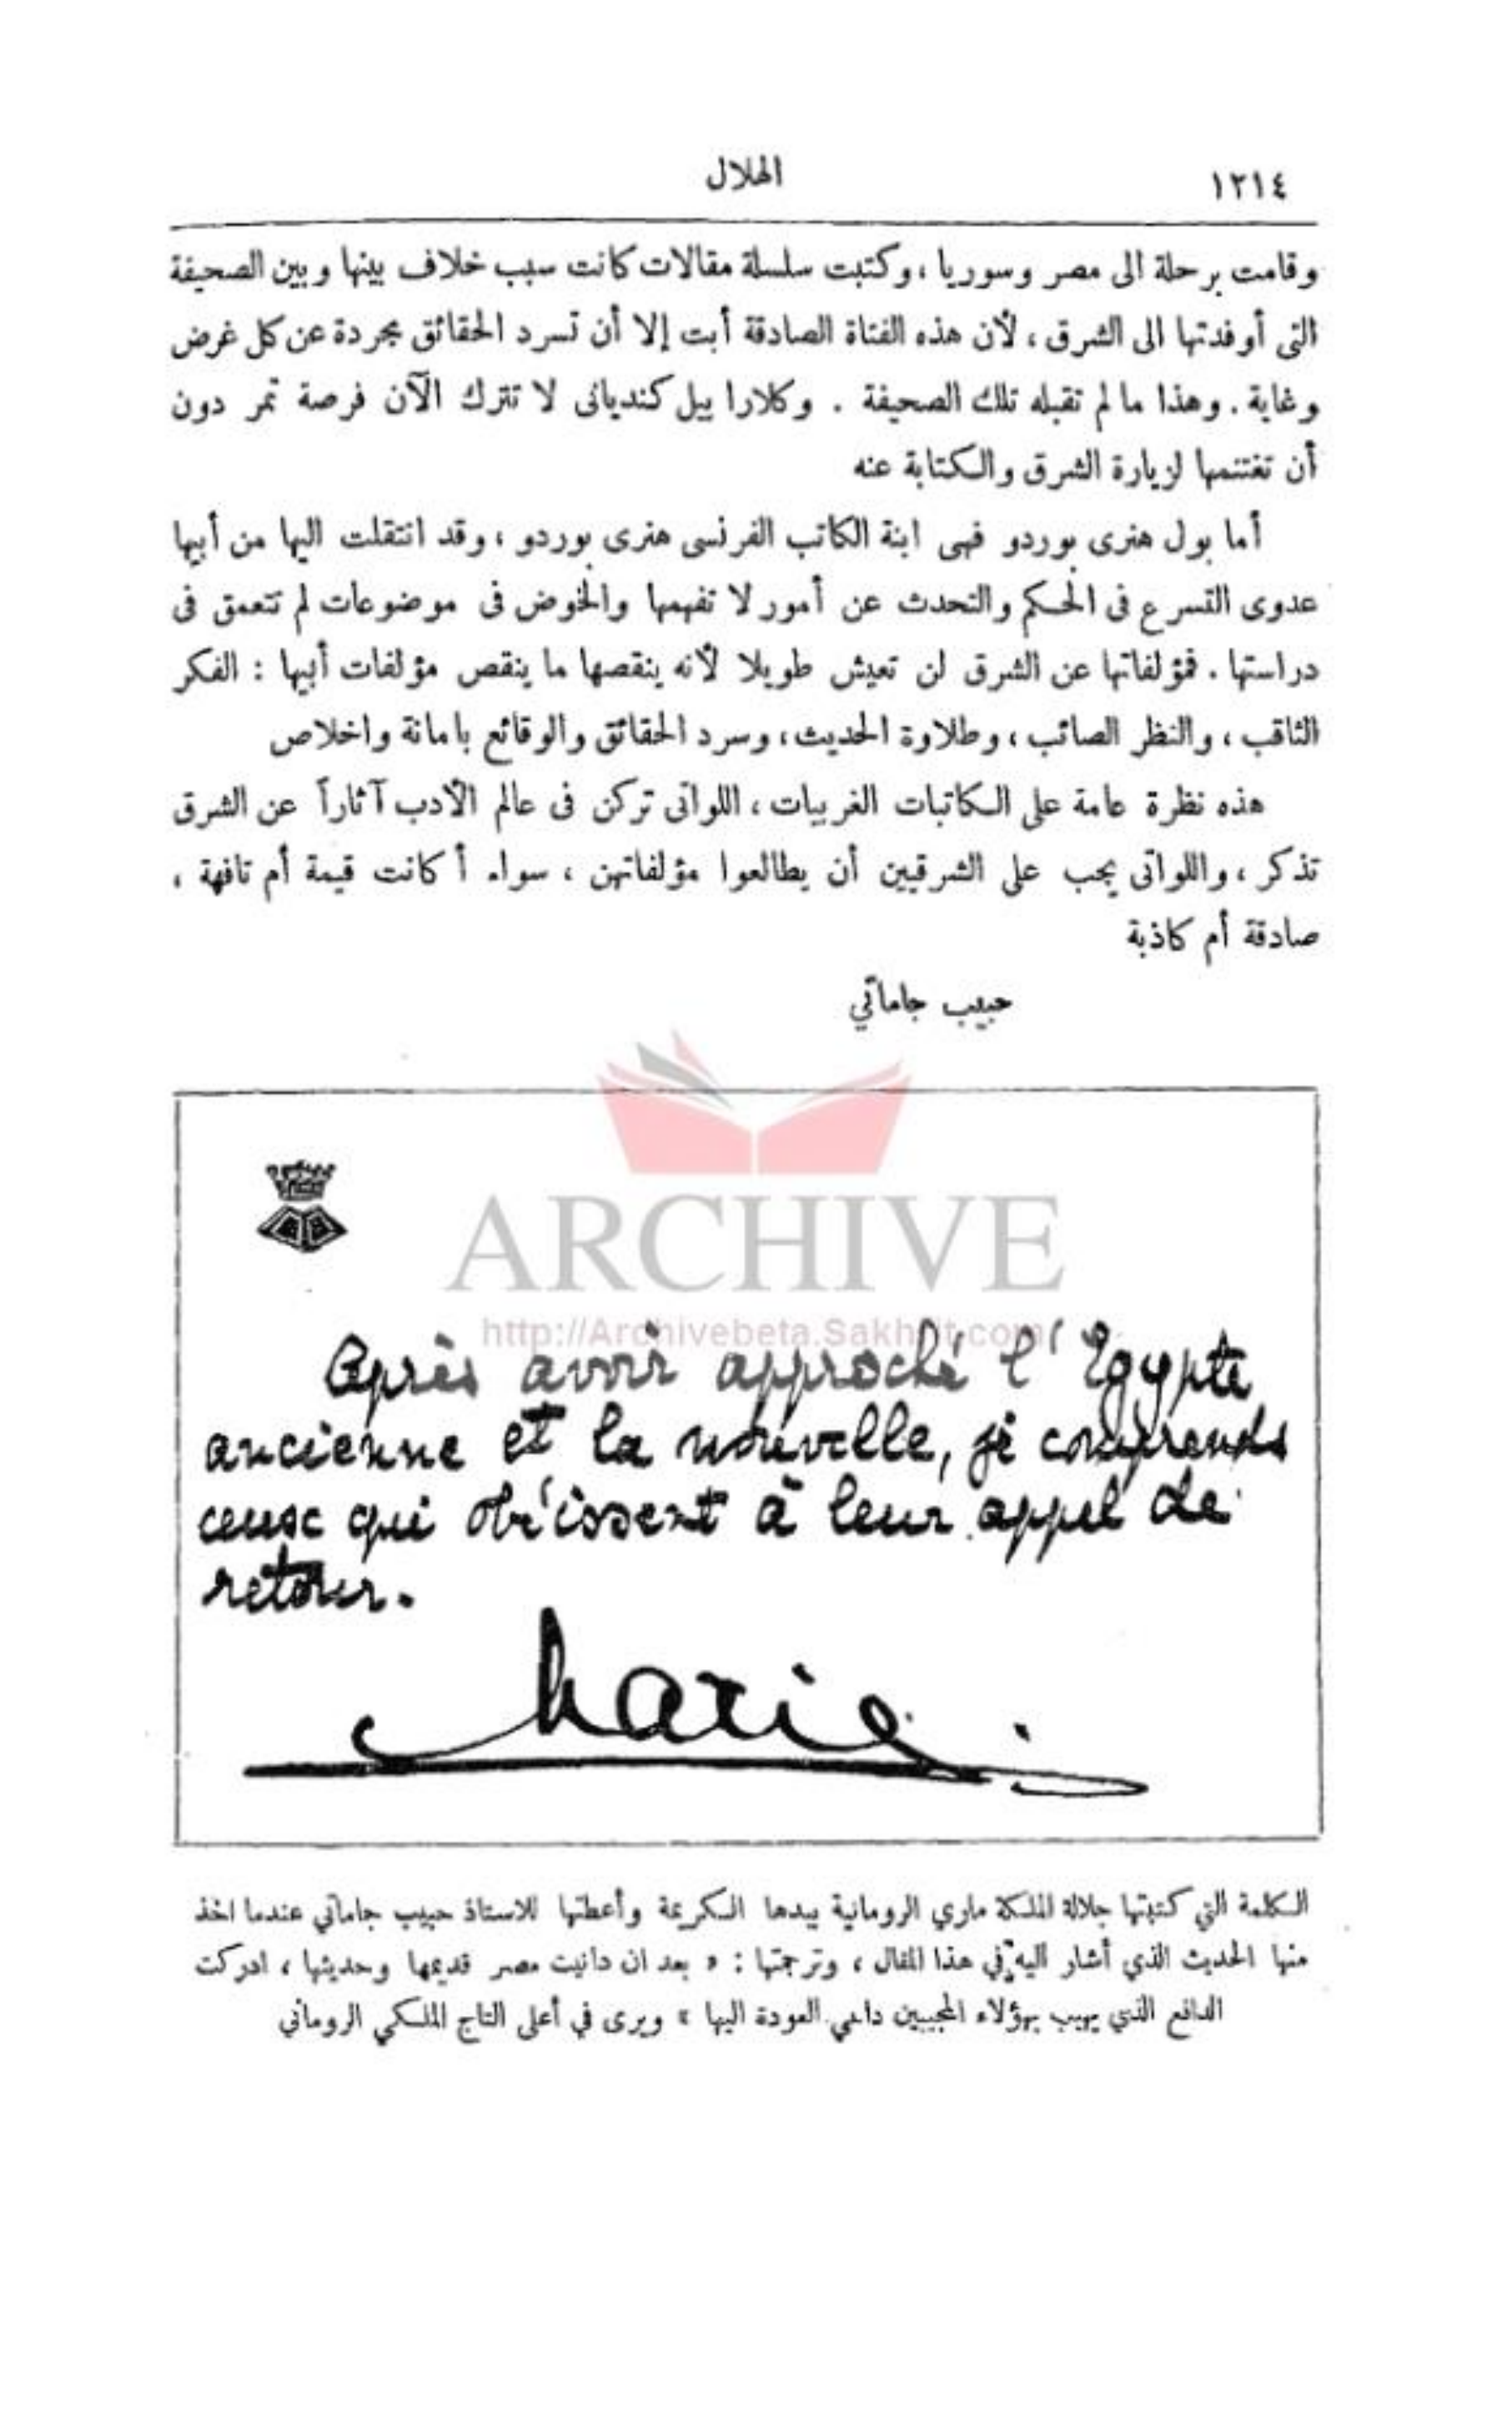 ١٢١٤
الهلال
وقامت برحلة الى مصر وسوريا ، وكتبت سلسلة مقالات كانت سبب خلاف بينها وبين الصحيفة
التى أوفدتها الى الشرق ، لأن هذه الفتاة الصادقة أبت إلا أن تسرد الحقائق مجردة عن كل غرض
وغاية . وهذا ما لم تقبله تلك الصحيفة . وكلارا بيل كنديانى لا تترك الآن فرصة تمر دون
أن تغتنمها لزيارة الشرق والكتابة عنه
أما بول هنرى بوردو فهى ابنة الكاتب الفرنسى هنرى بوردو ، وقد انتقلت اليها من أبيها
عدوى التسرع فى الحكم والتحدث عن أمور لا تفهمها والخوض فى موضوعات لم تتعمق فى
دراستها . فمؤلفاتها عن الشرق لن تعيش طويلا لأنه ينقصها ما ينقص مؤلفات أبيها : الفكر
الثاقب ، والنظر الصائب ، وطلاوة الحديث ، وسرد الحقائق والوقائع بامانة واخلاص
هذه نظرة عامة على الكاتبات الغربيات ، اللواتى تركن فى عالم الأدب آثاراً عن الشرق
تذكر ، واللواتى يجب على الشرقيين أن يطالعوا مؤلفاتهن ، سواء أكانت قيمة أم تافهة ،
صادقة أم كاذبة
حبيب جاماتي
ARCHIVE
http://Archivebeta.Sakhrit.com
Après avoir approché l'Egypte
ancienne et la nouvelle, je comprends
ceux qui obéissent à leur appel de
retour.
Marie
الكلمة التي كتبتها جلالة الملكة ماري الرومانية بيدها الكريمة وأعطتها للاستاذ حبيب جاماتي عندما اخذ
منها الحديث الذي أشار اليه في هذا المقال ، وترجمتها : « بعد ان دانيت مصر قديمها وحديثها ، ادركت
الدافع الذي يهيب بهؤلاء المجيبين داعي العودة اليها » ويرى في أعلى التاج الملكي الروماني